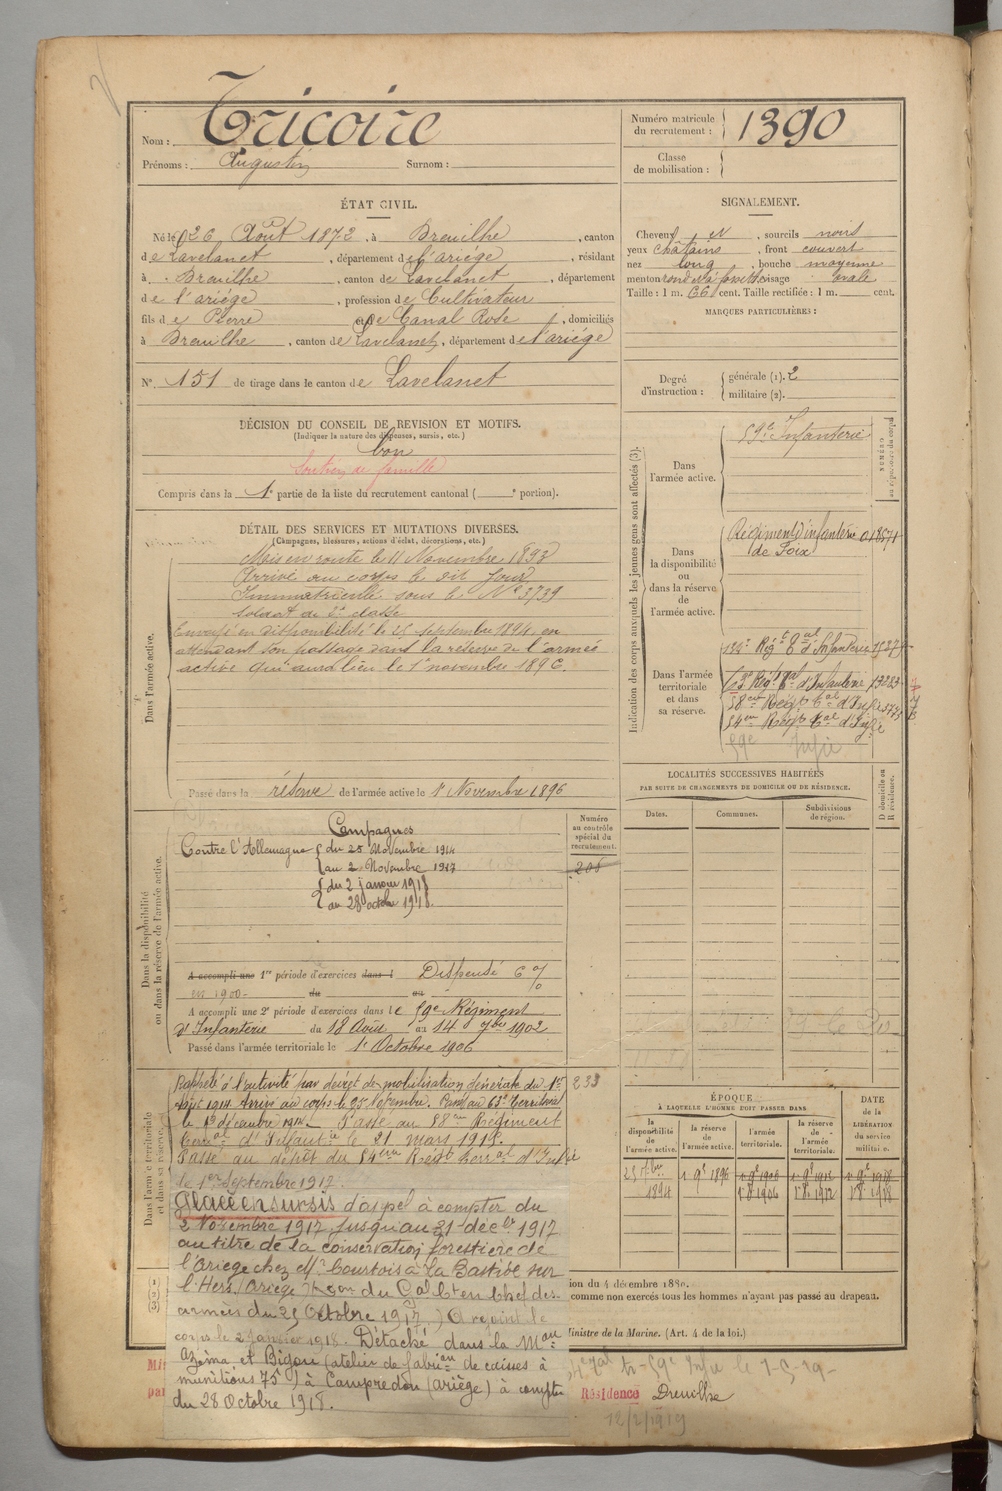 Nom : Tricoire
Prénoms : Augustin Surnom :
Numéro matricule du recrutement : 1390
Classe de mobilisation :
ÉTAT CIVIL.
Né le 26 Août 1872, à Dreuilhe, canton
de Lavelanet, département de l'ariége, résidant
à Dreuilhe, canton de Lavelanet, département
de l'ariége, profession de Cultivateur
fils de Pierre et de Canal Rose, domiciliés
à Dreuilhe, canton de Lavelanet, département de l'ariége
N° 151 de tirage dans le canton de Lavelanet
SIGNALEMENT.
Cheveux N, sourcils noirs
yeux châtains, front couvert
nez long, bouche moyenne
menton rond visage ovale
Taille : 1 m. 66 cent. Taille rectifiée : 1 m. cent.
MARQUES PARTICULIÈRES :
Degré d'instruction : générale (1). 2
militaire (2).
DÉCISION DU CONSEIL DE REVISION ET MOTIFS.
(Indiquer la nature des dispenses, sursis, etc.)
bon
Soutien de famille
Compris dans la 1e partie de la liste du recrutement cantonal ( e portion).
DÉTAIL DES SERVICES ET MUTATIONS DIVERSES.
(Campagnes, blessures, actions d'éclat, décorations, etc.)
Dans l'armée active.
Mis en route le 11 Novembre 1893
Arrivé au corps le dit Jour
Immatriculé sous le N° 3739
Soldat de 2e classe
Envoyé en disponibilité le 25 septembre 1894, en
attendant son passage dans la réserve de l'armée
active qui aura lieu le 1er novembre 1896.
Passé dans la réserve de l'armée active le 1er Novembre 1896
Indication des corps auxquels les jeunes gens sont affectés (3).
NUMÉRO au répertoire du corps
Dans l'armée active.
59e Infanterie
Dans la disponibilité ou dans la réserve de l'armée active.
Régiment d'infanterie 018571
de Foix
Dans l'armée territoriale et dans sa réserve.
Rég t al d'Infanterie
63e Régt d'Infanterie 13083
58eme Régt tal d'Infie
54em Régt tal d'Infie
59e Infie
LOCALITÉS SUCCESSIVES HABITÉES
PAR SUITE DE CHANGEMENTS DE DOMICILE OU DE RÉSIDENCE.
Dates. Communes. Subdivisions de région. D domicile ou R résidence.
Dans la disponibilité ou dans la réserve de l'armée active.
Numéro au contrôle spécial du recrutement.
206
Campagnes
Contre l'Allemagne du 25 Novembre 1914
au 2 Novembre 1917
du 2 janvier 1918
au 28 octobre 1918.
A accompli une 1re période d'exercices dans l Dispensé 6 %
en 1900 du au
A accompli une 2e période d'exercices dans le 59e Régiment
d'Infanterie du 18 Août au 14 7bre 1902
Passé dans l'armée territoriale le 1er Octobre 1906
Dans l'armée territoriale et dans sa réserve.
233
Rappelé à l'activité par décret de mobilisation générale du 1er
Août 1914. Arrivé au corps le 25 Novembre. Passé au 63e Territorial
le 13 décembre 1914. Passé au 58em Régiment
Terral d'Infantie le 21 mars 1915.
Passé au dépôt du 54em Régt terral d'Infie
le 1er Septembre 1917.
Placé en sursis d'appel à compter du
2 Novembre 1917 jusqu'au 31 décbr 1917
au titre de la conservation forestière de
l'Ariège chez Mr Courtois à la Bastide sur
l'Hers (Ariège) son du Gal Ct en Chef des
armées du 25 Octobre 1917.) A rejoint le
corps le 2 janvier 1918. Détaché dans la Mon
Azéma et Bigou (atelier de fabron de caisses à
munitions 75) à Campredon (ariège) à compter
du 28 Octobre 1918.
ÉPOQUE
À LAQUELLE L'HOMME DOIT PASSER DANS
la disponibilité de l'armée active. la réserve de l'armée active. l'armée territoriale. la réserve de l'armée territoriale. DATE de la LIBÉRATION du service militaire.
25 7bre 1894 1 9e 1896 1 9e 1906 1 9e 1912 1 9e 1918
1 8 1906 1 8 1912 1 8 1918
ion du 4 décembre 188
comme non exercés tous les hommes n'ayant pas passé au drapeau.
Ministre de la Marine. (Art. 4 de la loi.)
59e Infie le
Résidence Dreuilhe
12/2/1919